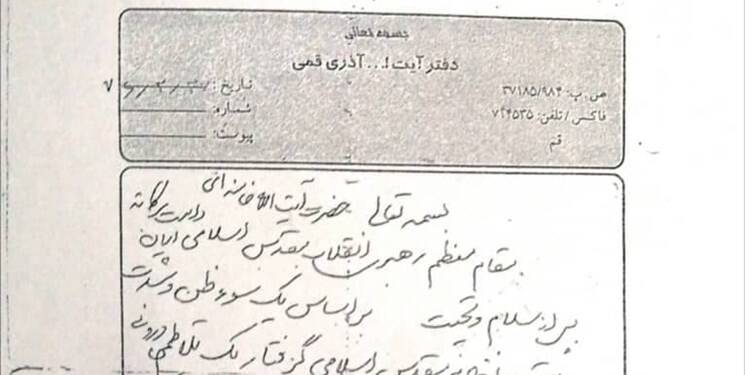 بسمه تعالی
دفتر آیت ا... آذری قمی
ص. پ: ۳۷۱۸۵/۹۸۴
تاریخ:
فاکس / تلفن: ۷۴۴۵۳۵
شماره:
قم
پیوست:
بسمه تعالی حضرت آیت الله خامنه‌ای دامت برکاته
مقام معظم رهبری انقلاب مقدس اسلامی ایران
پس از سلام و تحیت براساس یک سوء ظن و شدت
مقدس اسلامی گرفتار یک تلاطم درونی